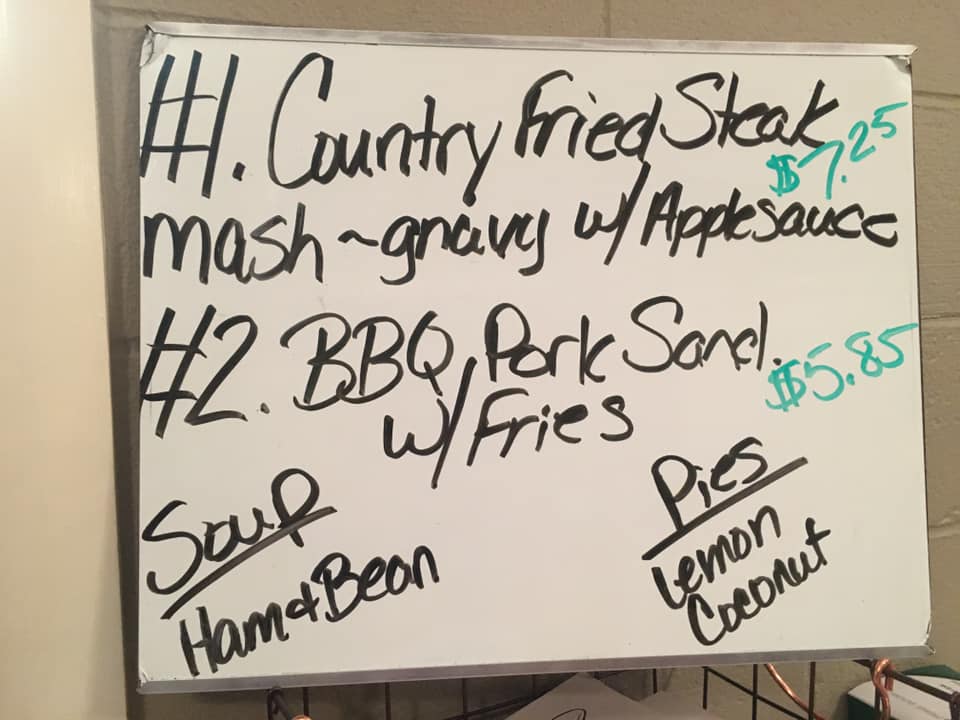 #1. Country Fried Steak
$7.25
mash ~ gravy w/ Applesauce
#2. BBQ Pork Sand.
$5.85
w/ Fries
Soup
Ham & Bean
Pies
Lemon
Coconut